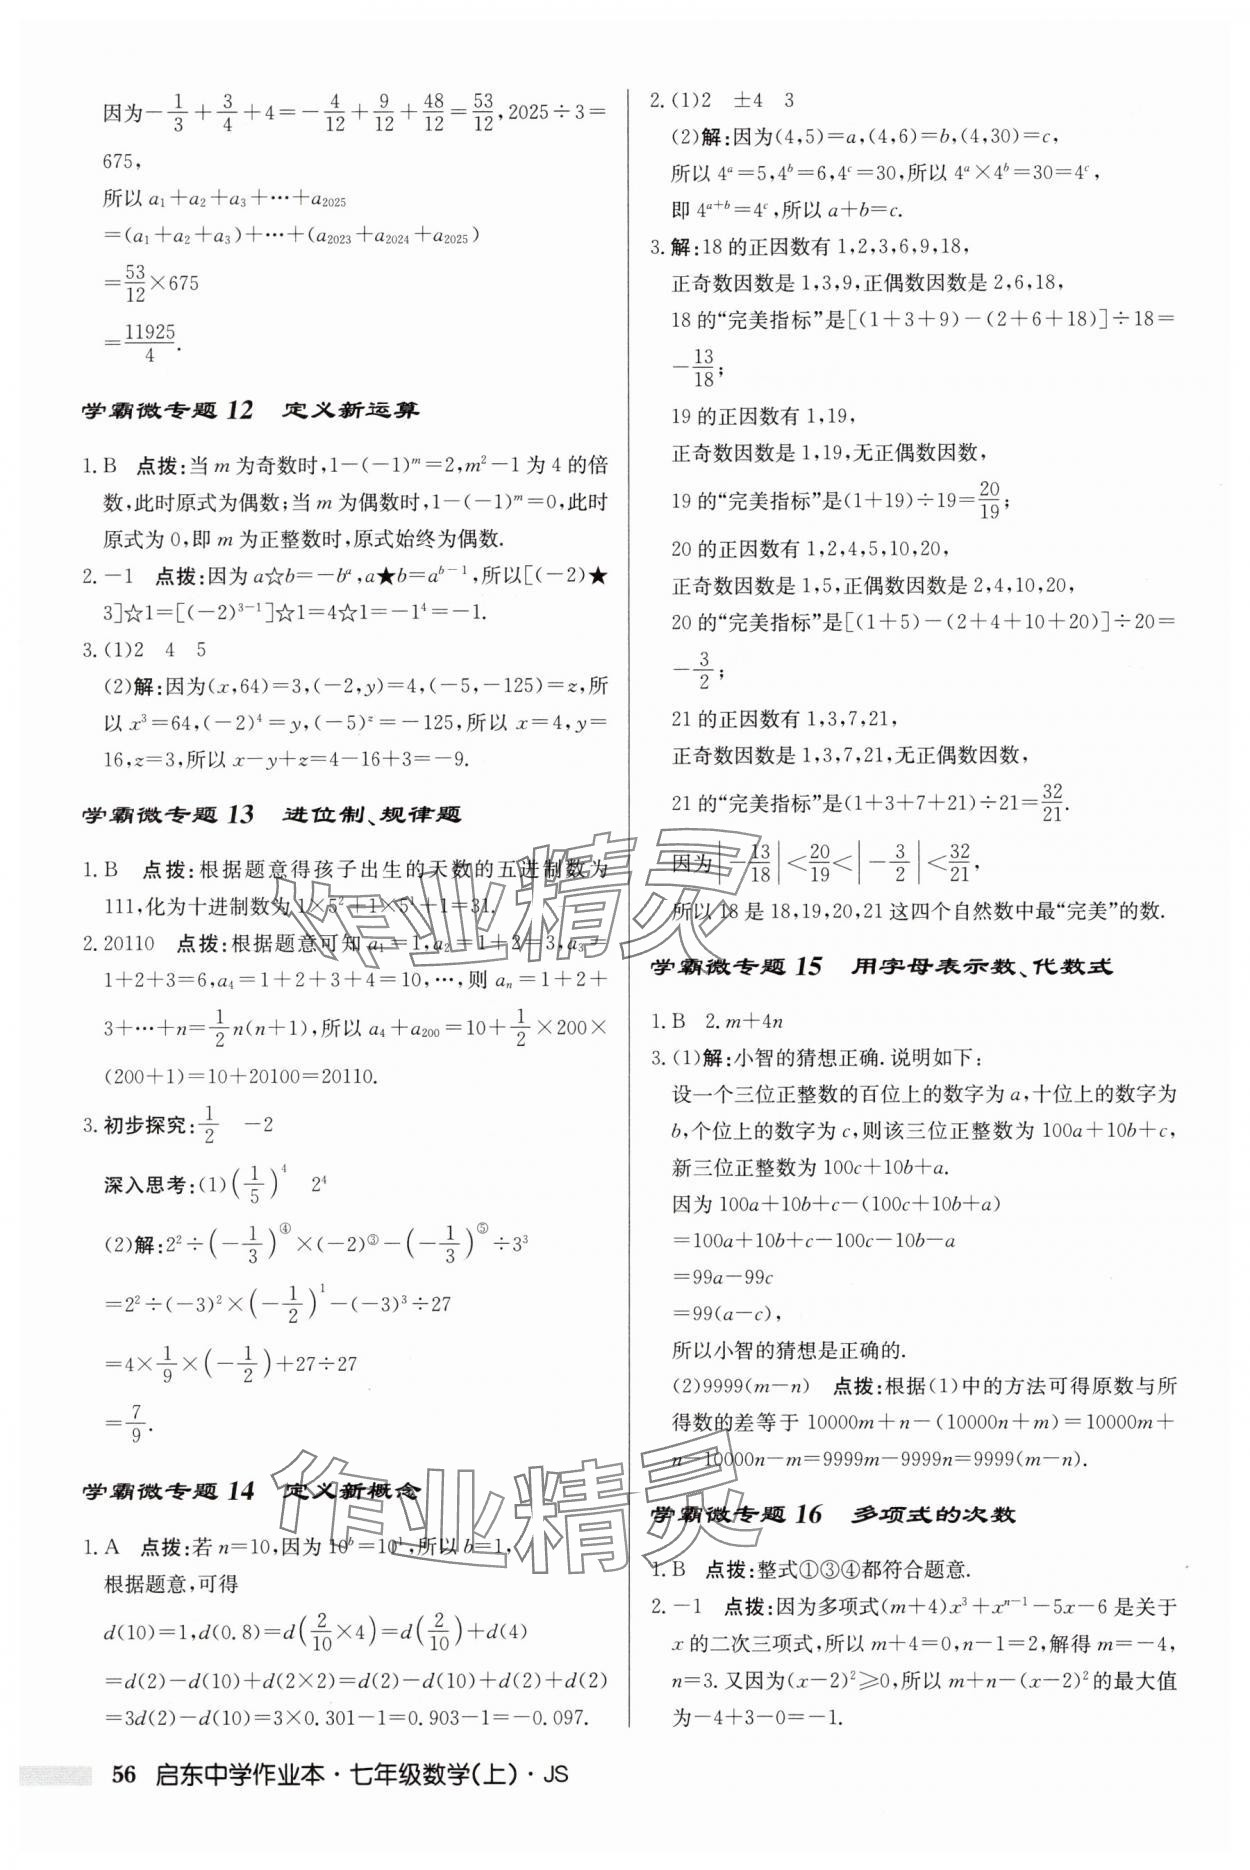 因为-1/3+3/4+4=-4/12+9/12+48/12=53/12,2025÷3=
675,
所以 a₁+a₂+a₃+…+a₂₀₂₅
=(a₁+a₂+a₃)+…+(a₂₀₂₃+a₂₀₂₄+a₂₀₂₅)
=53/12×675
=11925/4.
学霸微专题 12 定义新运算
1. B 点拨:当 m 为奇数时,1-(-1)ᵐ=2,m²-1 为 4 的倍
数,此时原式为偶数;当 m 为偶数时,1-(-1)ᵐ=0,此时
原式为 0,即 m 为正整数时,原式始终为偶数.
2. -1 点拨:因为 a☆b=-bᵃ,a★b=aᵇ⁻¹,所以[(-2)★
3]☆1=[(-2)³⁻¹]☆1=4☆1=-1⁴=-1.
3. (1)2 4 5
(2)解:因为(x,64)=3,(-2,y)=4,(-5,-125)=z,所
以 x³=64,(-2)⁴=y,(-5)ᶻ=-125,所以 x=4,y=
16,z=3,所以 x-y+z=4-16+3=-9.
学霸微专题 13 进位制、规律题
1. B 点拨:根据题意得孩子出生的天数的五进制数为
111,化为十进制数为 1×5²+1×5¹+1=31.
2. 20110 点拨:根据题意可知 a₁=1,a₂=1+2=3,a₃=
1+2+3=6,a₄=1+2+3+4=10,…,则 aₙ=1+2+
3+…+n=1/2n(n+1),所以 a₄+a₂₀₀=10+1/2×200×
(200+1)=10+20100=20110.
3. 初步探究:1/2 -2
深入思考:(1)(1/5)⁴ 2⁴
(2)解:2²÷(-1/3)^④×(-2)^③-(-1/3)^⑤÷3³
=2²÷(-3)²×(-1/2)¹-(-3)³÷27
=4×1/9×(-1/2)+27÷27
=7/9.
学霸微专题 14 定义新概念
1. A 点拨:若 n=10,因为 10ᵇ=10¹,所以 b=1,
根据题意,可得
d(10)=1,d(0.8)=d(2/10×4)=d(2/10)+d(4)
=d(2)-d(10)+d(2×2)=d(2)-d(10)+d(2)+d(2)
=3d(2)-d(10)=3×0.301-1=0.903-1=-0.097.
2. (1)2 ±4 3
(2)解:因为(4,5)=a,(4,6)=b,(4,30)=c,
所以 4ᵃ=5,4ᵇ=6,4ᶜ=30,所以 4ᵃ×4ᵇ=30=4ᶜ,
即 4ᵃ⁺ᵇ=4ᶜ,所以 a+b=c.
3. 解:18 的正因数有 1,2,3,6,9,18,
正奇数因数是 1,3,9,正偶数因数是 2,6,18,
18 的“完美指标”是[(1+3+9)-(2+6+18)]÷18=
-13/18;
19 的正因数有 1,19,
正奇数因数是 1,19,无正偶数因数,
19 的“完美指标”是(1+19)÷19=20/19;
20 的正因数有 1,2,4,5,10,20,
正奇数因数是 1,5,正偶数因数是 2,4,10,20,
20 的“完美指标”是[(1+5)-(2+4+10+20)]÷20=
-3/2;
21 的正因数有 1,3,7,21,
正奇数因数是 1,3,7,21,无正偶数因数,
21 的“完美指标”是(1+3+7+21)÷21=32/21.
因为|-13/18|<20/19<|-3/2|<32/21,
所以 18 是 18,19,20,21 这四个自然数中最“完美”的数.
学霸微专题 15 用字母表示数、代数式
1. B 2. m+4n
3. (1)解:小智的猜想正确. 说明如下:
设一个三位正整数的百位上的数字为 a,十位上的数字为
b,个位上的数字为 c,则该三位正整数为 100a+10b+c,
新三位正整数为 100c+10b+a.
因为 100a+10b+c-(100c+10b+a)
=100a+10b+c-100c-10b-a
=99a-99c
=99(a-c),
所以小智的猜想是正确的.
(2)9999(m-n) 点拨:根据(1)中的方法可得原数与所
得数的差等于 10000m+n-(10000n+m)=10000m+
n-10000n-m=9999m-9999n=9999(m-n).
学霸微专题 16 多项式的次数
1. B 点拨:整式①③④都符合题意.
2. -1 点拨:因为多项式(m+4)x³+xⁿ⁻¹-5x-6 是关于
x 的二次三项式,所以 m+4=0,n-1=2,解得 m=-4,
n=3. 又因为(x-2)²≥0,所以 m+n-(x-2)²的最大值
为-4+3-0=-1.
56 启东中学作业本·七年级数学(上)·JS
作业精灵
作业精灵